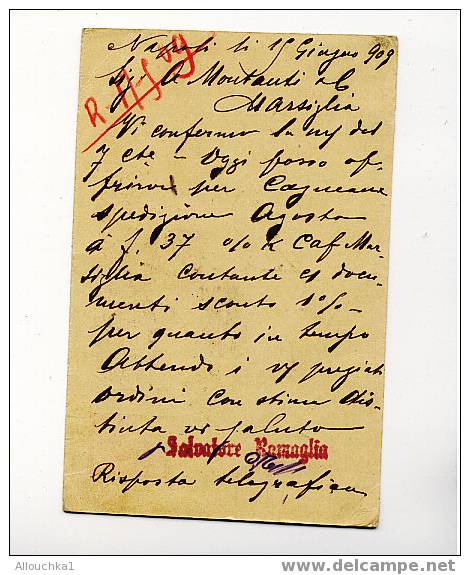 Napoli li 15 Giugno 909
R. 17/6 09
Sigi A Montanti & C
Marsiglia
Vi confermo la mj del
7 cte - Oggi posso of-
frirvi per
spedizione Agosto
a f. 37 % K Caf Mar-
siglia contante cj docu-
menti sconto 1%-
per quanto in tempo
Attendo i vj pregiati
ordini con stima dis-
tinta vi saluto
Salvatore Ramaglia
Risposta telegrafica
Allouchka1
delcampe.net